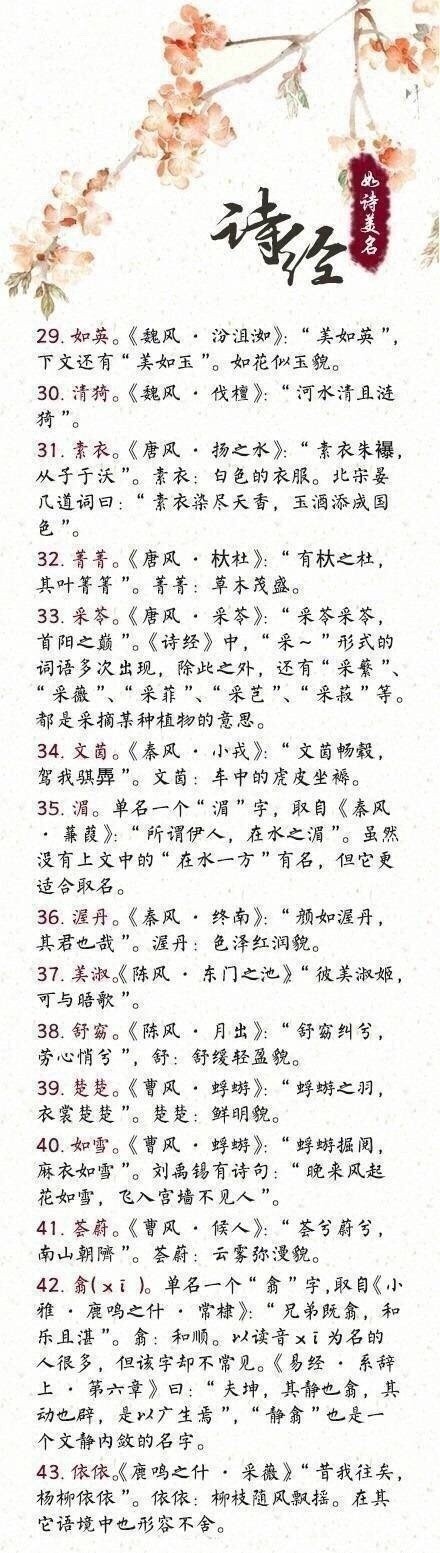 诗经
如诗美名
29. 如英。《魏风 · 汾沮洳》：“美如英”，
下文还有“美如玉”。如花似玉貌。
30. 清猗。《魏风 · 伐檀》：“河水清且涟
猗”。
31. 素衣。《唐风 · 扬之水》：“素衣朱襮，
从子于沃”。素衣：白色的衣服。北宋晏
几道词曰：“素衣染尽天香，玉酒添成国
色”。
32. 菁菁。《唐风 · 杕杜》：“有杕之杜，
其叶菁菁”。菁菁：草木茂盛。
33. 采苓。《唐风 · 采苓》：“采苓采苓，
首阳之巅”。《诗经》中，“采~”形式的
词语多次出现，除此之外，还有“采蘩”、
“采薇”、“采菲”、“采芑”、“采菽”等。
都是采摘某种植物的意思。
34. 文茵。《秦风 · 小戎》：“文茵畅毂，
驾我骐馵”。文茵：车中的虎皮坐褥。
35. 湄。单名一个“湄”字，取自《秦风
· 蒹葭》：“所谓伊人，在水之湄”。虽然
没有上文中的“在水一方”有名，但它更
适合取名。
36. 渥丹。《秦风 · 终南》：“颜如渥丹，
其君也哉”。渥丹：色泽红润貌。
37. 美淑。《陈风 · 东门之池》“彼美淑姬，
可与晤歌”。
38. 舒窈。《陈风 · 月出》：“舒窈纠兮，
劳心悄兮”，舒：舒缓轻盈貌。
39. 楚楚。《曹风 · 蜉蝣》：“蜉蝣之羽，
衣裳楚楚”。楚楚：鲜明貌。
40. 如雪。《曹风 · 蜉蝣》：“蜉蝣掘阅，
麻衣如雪”。刘禹锡有诗句：“晚来风起
花如雪，飞入宫墙不见人”。
41. 荟蔚。《曹风 · 候人》：“荟兮蔚兮，
南山朝隮”。荟蔚：云雾弥漫貌。
42. 翕(xī)。单名一个“翕”字，取自《小
雅 · 鹿鸣之什 · 常棣》：“兄弟既翕，和
乐且湛”。翕：和顺。以读音xī为名的
人很多，但该字却不常见。《易经 · 系辞
上 · 第六章》曰：“夫坤，其静也翕，其
动也辟，是以广生焉”，“静翕”也是一
个文静内敛的名字。
43. 依依。《鹿鸣之什 · 采薇》“昔我往矣，
杨柳依依”。依依：柳枝随风飘摇。在其
它语境中也形容不舍。